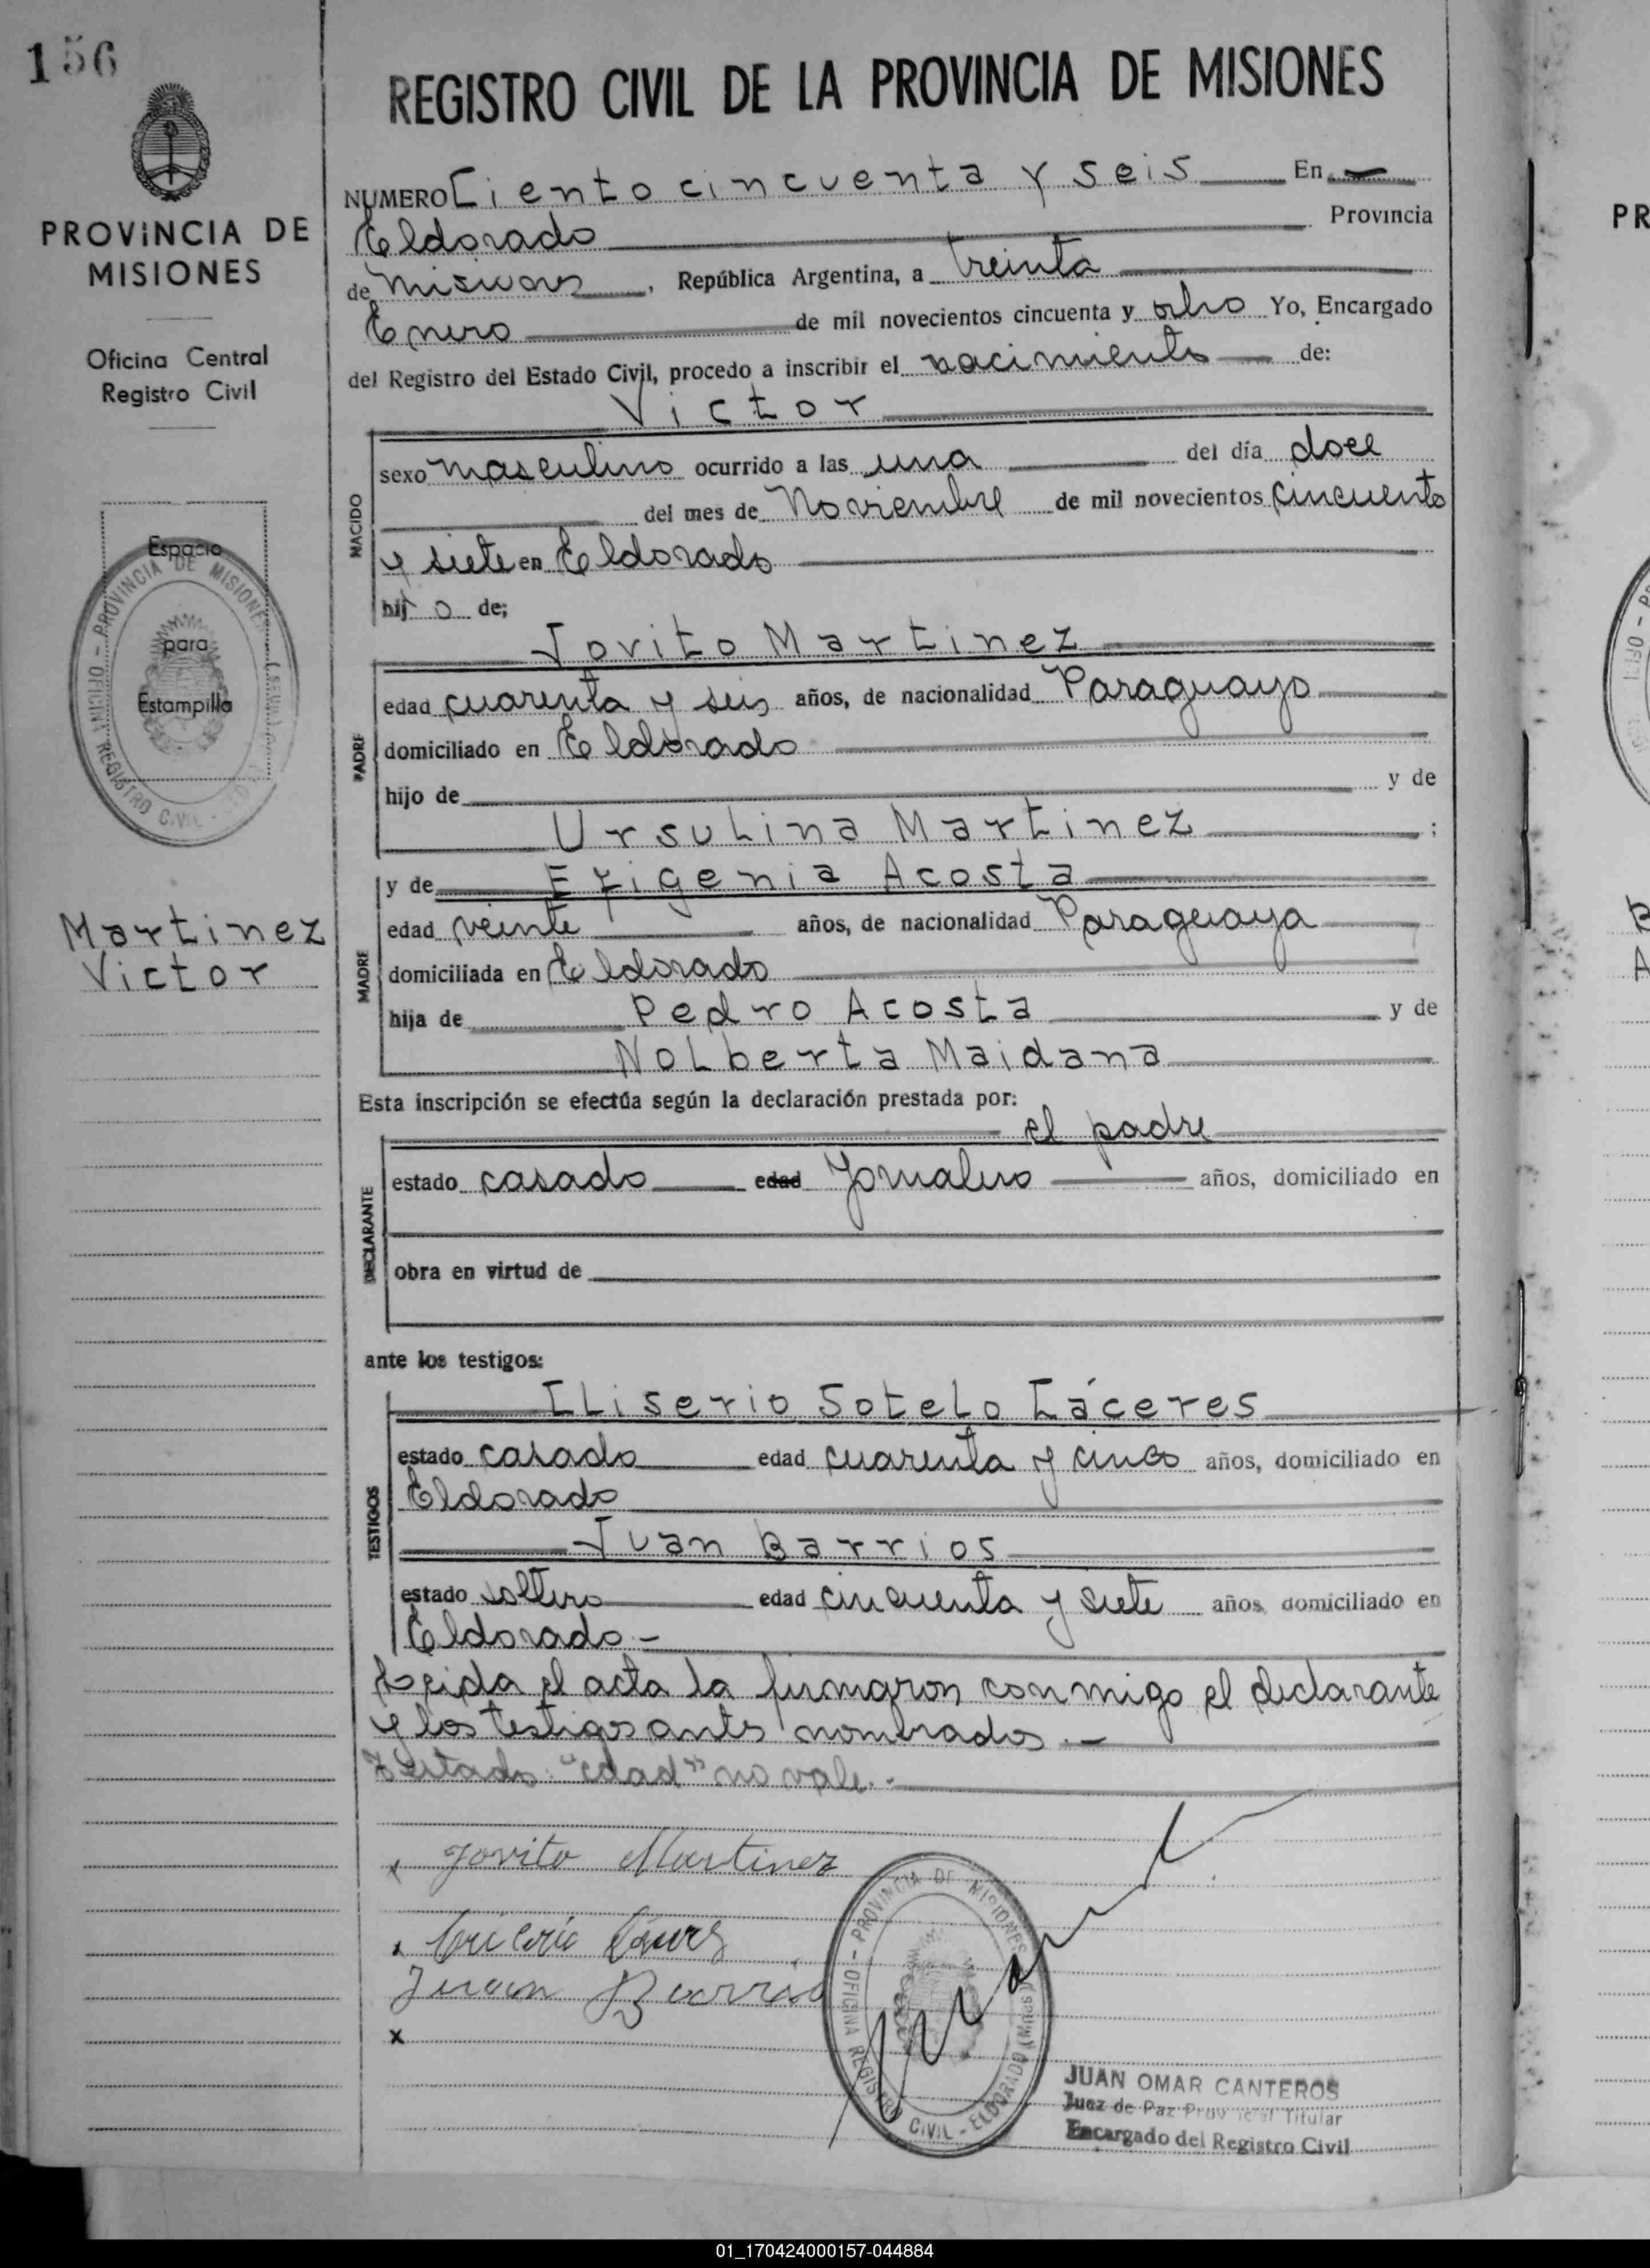 156
PROVINCIA DE
MISIONES
Oficina Central
Registro Civil
Espacio
para
Estampilla
PROVINCIA DE MISIONES
OFICINA REGISTRO CIVIL
Martinez
Victor
REGISTRO CIVIL DE LA PROVINCIA DE MISIONES
NUMERO Ciento cincuenta y seis En
Eldorado Provincia
de Misiones, República Argentina, a treinta
Enero de mil novecientos cincuenta y ocho Yo, Encargado
del Registro del Estado Civil, procedo a inscribir el nacimiento de:
Victor
NACIDO
sexo masculino ocurrido a las una del día doce
del mes de Noviembre de mil novecientos cincuenta
y siete en Eldorado
hijo de;
Jovito Martinez
PADRE
edad cuarenta y seis años, de nacionalidad Paraguayo
domiciliado en Eldorado
hijo de y de
Ursulina Martinez ;
y de Efigenia Acosta
MADRE
edad veinte años, de nacionalidad Paraguaya
domiciliada en Eldorado
hija de Pedro Acosta y de
Nolberta Maidana
Esta inscripción se efectúa según la declaración prestada por:
el padre
DECLARANTE
estado casado edad Jornalero años, domiciliado en
obra en virtud de
ante los testigos:
Sotelo Cáceres
TESTIGOS
estado casado edad cuarenta y cinco años, domiciliado en
Eldorado
Juan Barrios
estado soltero edad cincuenta y siete años domiciliado en
Eldorado.-
Leida el acta la firmaron conmigo el declarante
y los testigos antes nombrados.-
Testado: "edad" no vale.-
x Jovito Martinez
x
Juan Barrios
x
PROVINCIA DE MISIONES
OFICINA REGISTRO CIVIL - ELDORADO (Mnes.)
JUAN OMAR CANTEROS
Juez de Paz Provincial Titular
Encargado del Registro Civil
PR
01_170424000157-044884